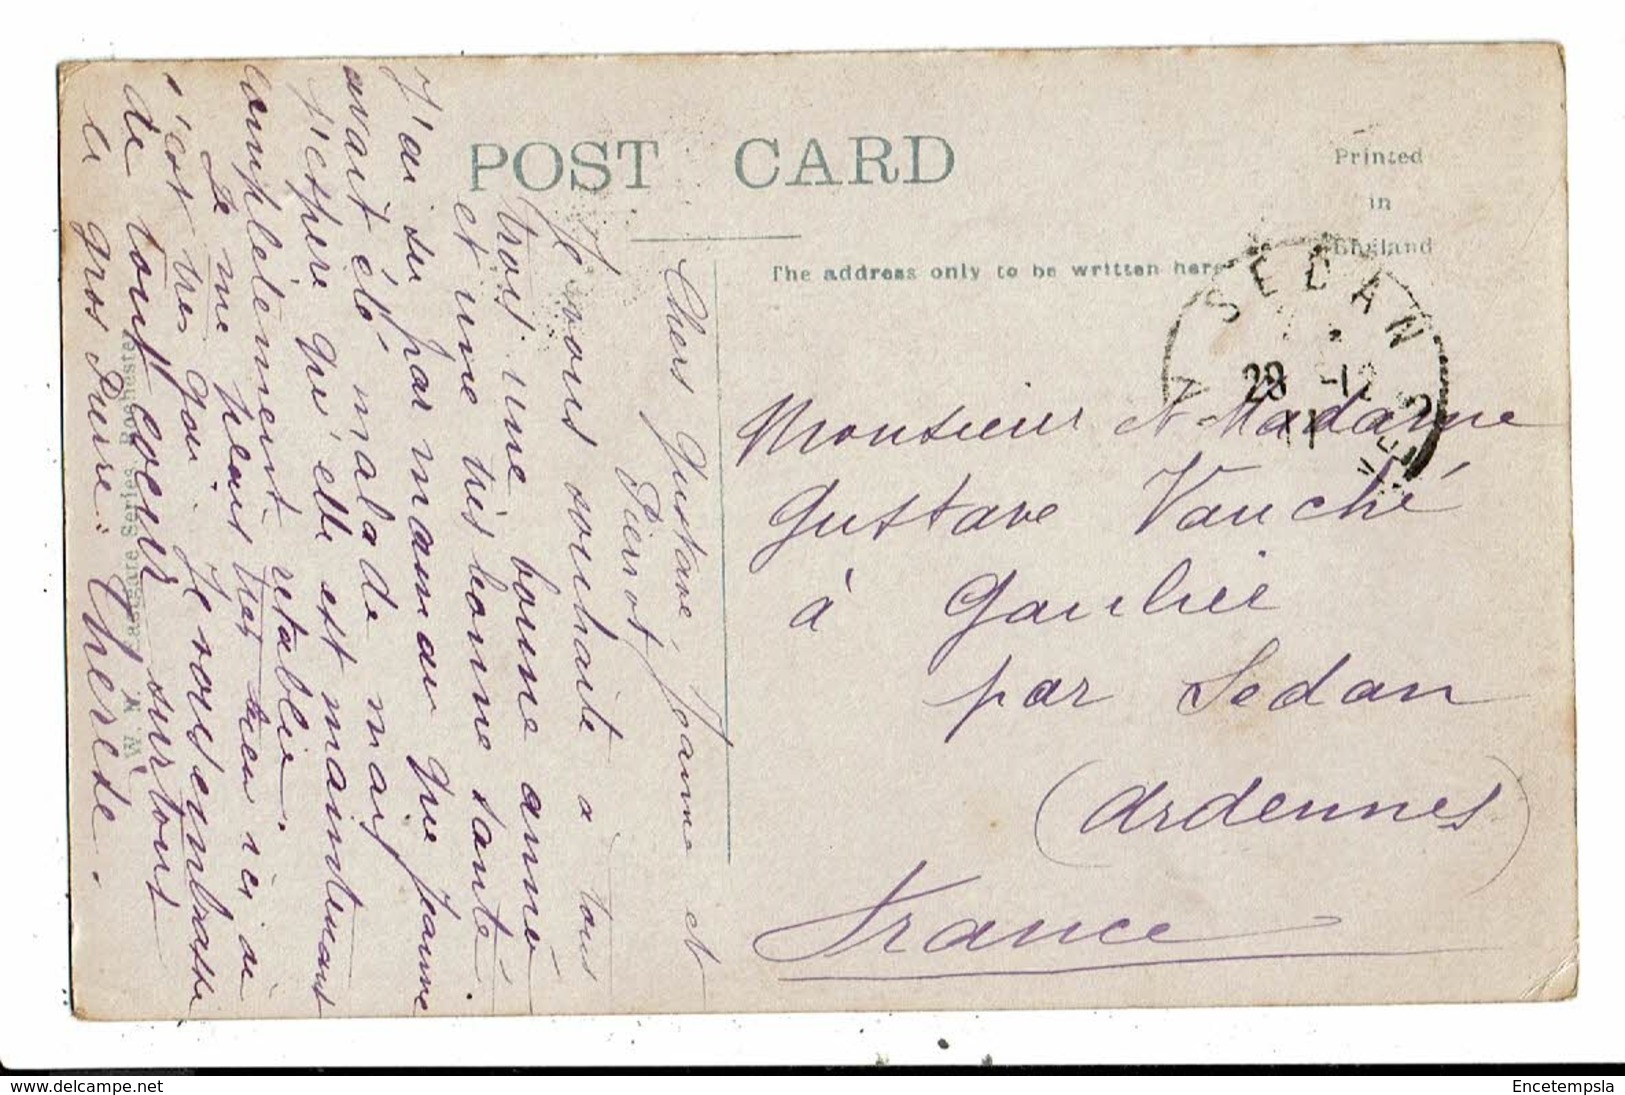 POST CARD
Printed
in
England
The address only to be written here
SEDAN
28 -12
11
Monsieur et Madame
Gustave Vauché
à Gaulier
par Sedan
(Ardennes)
France
Chers Gustave, Jeanne et
Pierrot
Je vous souhaite a tous
trois une bonne année
et une très bonne santé.
J'ai su par maman que Jeanne
avait été malade mais
j'espère qu'elle est maintenant
complètement rétablie.
Je me plais très bien ici où
c'est très gai. Je vous embrasse
de tout coeur surtout
le gros Pierre. Thérèse.
W. &
Series, Rochester
www.delcampe.net
Encetempsla